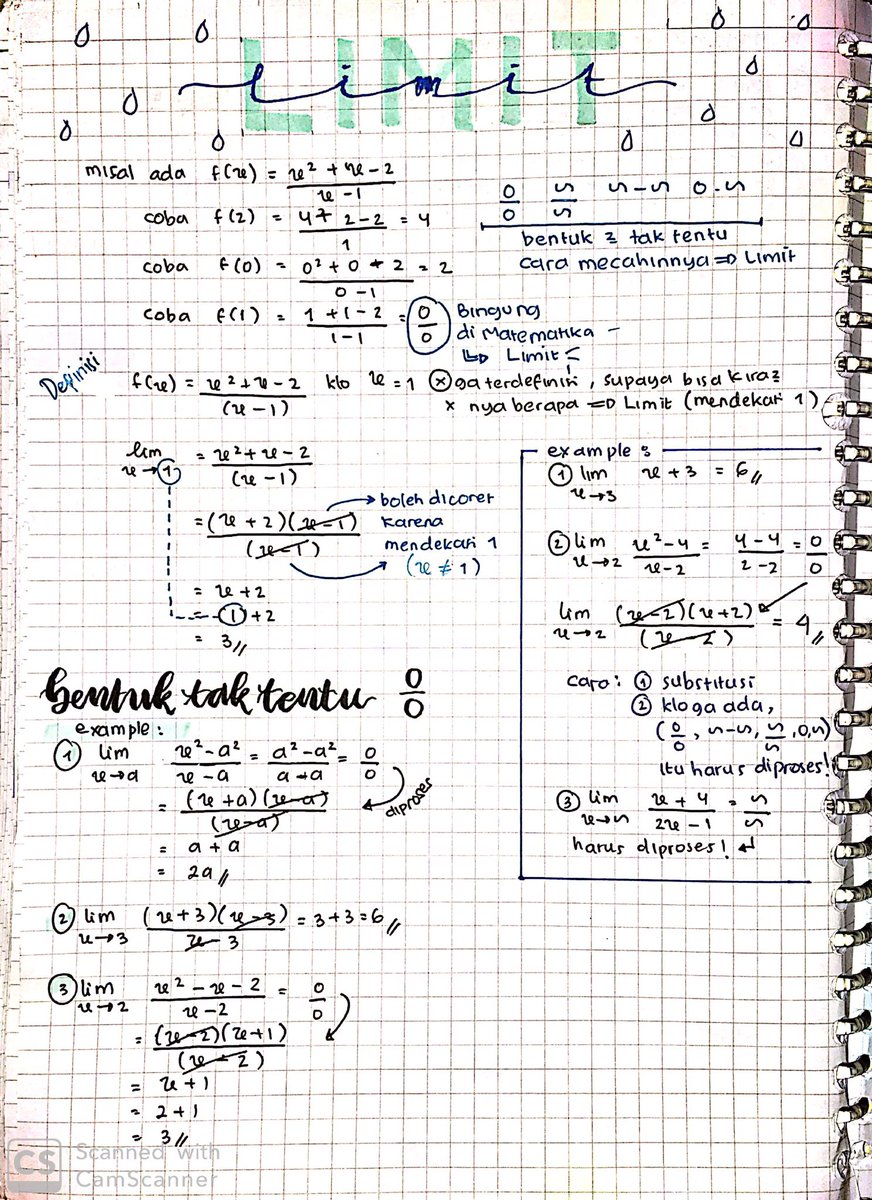 LIMIT
limit
misal ada f(x) = x² + x - 2 / x - 1
coba f(2) = 4 + 2 - 2 / 1 = 4
coba f(0) = 0² + 0 + 2 / 0 - 1 = 2
coba f(1) = 1 + 1 - 2 / 1 - 1 = 0/0
Bingung
di Matematika
↳ Limit
0/0 ∽/∽ ∽-∽ 0.∽
bentuk2 tak tentu
cara mecahinnya ⇒ Limit
Definisi
f(x) = x² + x - 2 / (x - 1) klo x = 1 ⊗ ga terdefinisi, supaya bisa kira2
x nya berapa ⇒ Limit (mendekati 1)
lim x→1 = x² + x - 2 / (x - 1)
= (x + 2)(x - 1) / (x - 1)
boleh dicoret
karena
mendekati 1
(x ≠ 1)
= x + 2
= 1 + 2
= 3 //
example :
① lim x→3 x + 3 = 6 //
② lim x→2 x² - 4 / x - 2 = 4 - 4 / 2 - 2 = 0/0
lim x→2 (x - 2)(x + 2) / (x - 2) = 4 //
cara : ① substitusi
② klo ga ada,
(0/0, ∽-∽, ∽/∽, 0,∽)
itu harus diproses!
③ lim x→∽ x + 4 / 2x - 1 = ∽/∽
harus diproses! ↵
bentuk tak tentu 0/0
example :
① lim x→a x² - a² / x - a = a² - a² / a - a = 0/0
diproses
= (x + a)(x - a) / (x - a)
= a + a
= 2a //
② lim x→3 (x + 3)(x - 3) / x - 3 = 3 + 3 = 6 //
③ lim x→2 x² - x - 2 / x - 2 = 0/0
= (x - 2)(x + 1) / (x - 2)
= x + 1
= 2 + 1
= 3 //
CS Scanned with
CamScanner